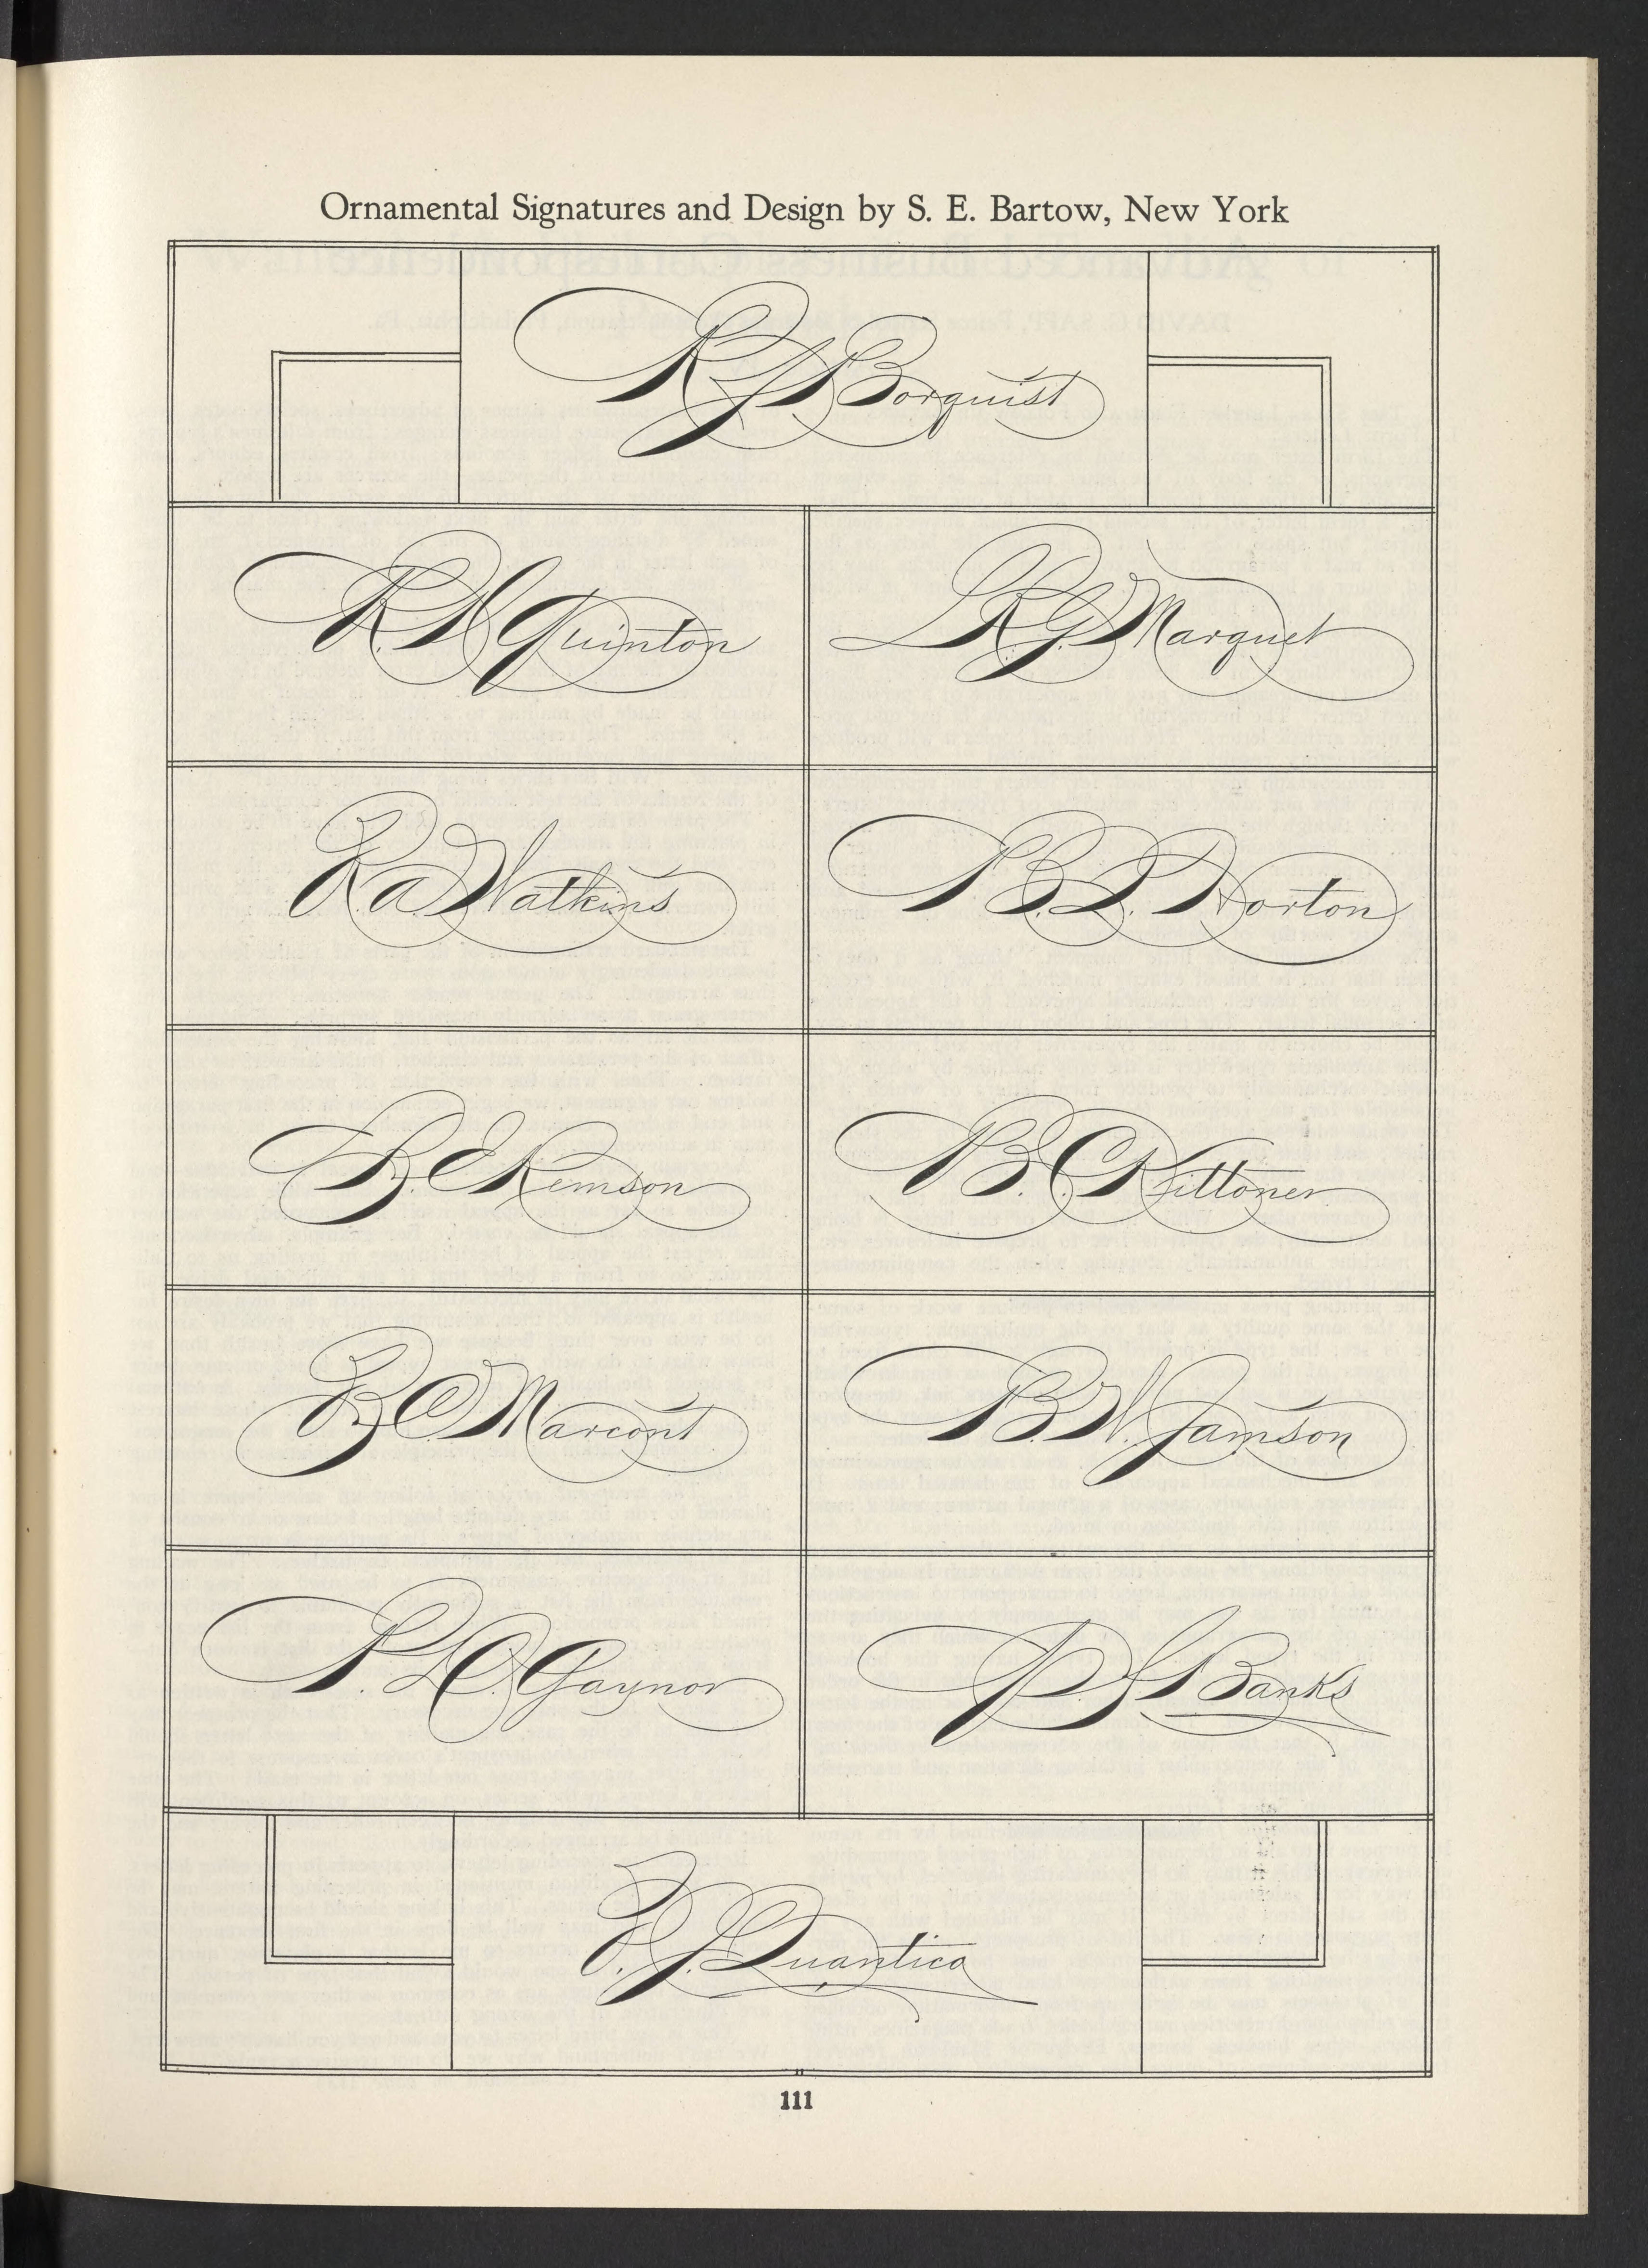 Ornamental Signatures and Design by S. E. Bartow, New York
Borquist
R. N. Quinton
L. R. G. Marquet
R. A. Watkins
P. B. D. Horton
B. E. Remson
P. B. C. Kittoner
B. C. Marcont
P. B. W. Jamson
P. L. O. Gaynor
P. S. Banks
P. J. Quantica
111